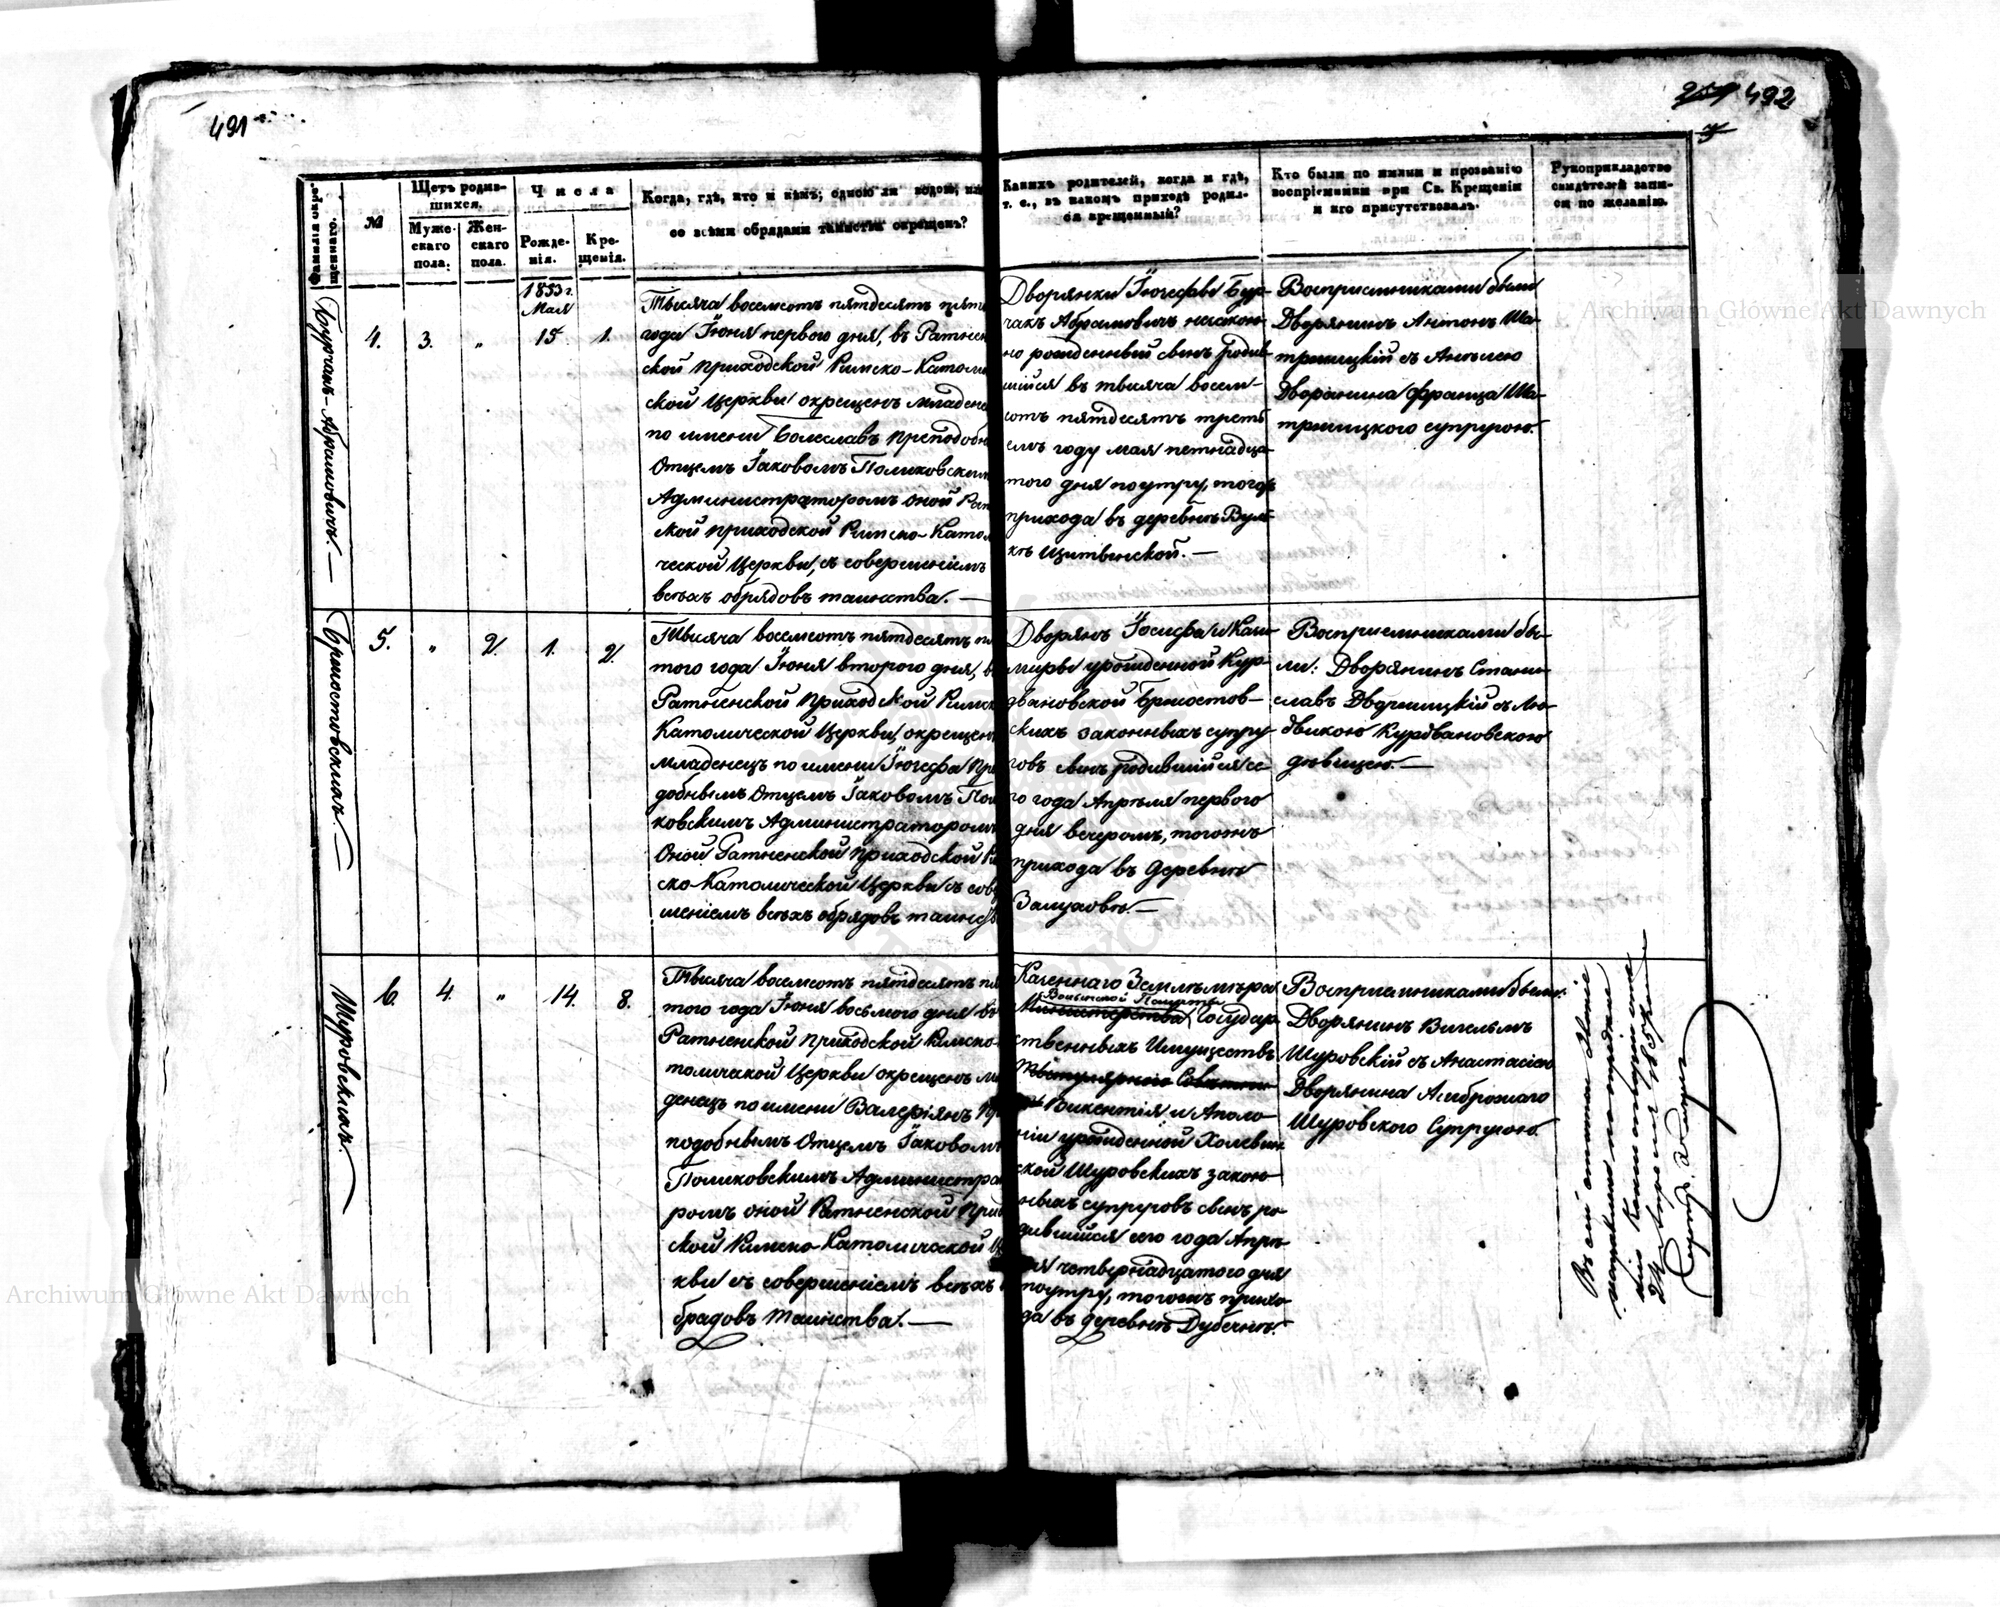 491
492
Фамилія окре-
щеннаго.
№
Щетъ родив-
шихся.
Муже-
скаго
пола.
Жен-
скаго
пола.
Числа
Рожде-
нія.
Кре-
щенія.
Когда, гдѣ, кто и кѣмъ; одною ли водою, или
со всѣми обрядами таинства окрещенъ?
Какихъ родителей, когда и гдѣ,
т. е., въ какомъ приходѣ родил-
ся крещенный?
Кто были по имени и прозванію
воспріемники при Св. Крещеніи
и кто присутствовалъ.
Рукоприкладство
свидѣтелей запи-
си по желанію.
Бурчакъ-Абрамовичъ.
4.
3.
"
1853 г.
Мая
15
1.
Тысяча восемсотъ пятдесятъ пято
года Іюня первого дня, въ Ратнен
ской приходской Римско-Католи
ской Церкви окрещенъ младене
по имени Болеславъ преподобн
Отцемъ Іаковомъ Полиховским
Администраторомъ оной Рат
ской приходской Римско-Като
ческой Церкви, съ совершеніемъ
всѣхъ обрядовъ таинства.
Дворянки Іозефы Бур-
чакъ Абрамовичъ незакон-
но рожденный сынъ родив-
шійся въ тысяча восем-
сотъ пятдесятъ треть
емъ году мая петнадца
того дня поутру, тогож
прихода въ деревнѣ Вуль
кѣ Щитынской.
Воспріемниками были
Дворянинъ Антонъ
съ Анелею
Дворянина Франца
супругою.
Бржостовскихъ.
5.
"
2.
1.
2.
Тысяча восемсотъ пятдесятъ пя
того года Іюня второго дня, въ
Ратненской приходской Римско
Католической Церкви, окрещенъ
младенецъ по имени Іозефа пре
добнымъ Отцемъ Іаковомъ Поли
ховскимъ Администраторомъ
Оной Ратненской приходской Ри
ско-Католической Церкви съ сове
шеніемъ всѣхъ обрядовъ таинств
Дворянъ Іосифа и Кази
миры урожденной Кур-
двановской Бржостов-
скихъ законныхъ супру
говъ сынъ родившійся се
го года Апрѣля первого
дня вечеромъ, тогожъ
прихода въ деревни
Залуховѣ.
Воспріемниками бы-
ли: Дворянинъ Стани-
славъ Дверницкій съ Лю-
двикою Курдвановскою
дѣвицею.
Щуровскихъ.
6.
4.
"
14.
8.
Тысяча восемсотъ пятдесятъ пя
того года Іюня восьмого дня въ
Ратненской приходской Римско
толической Церкви окрещенъ мла
денецъ по имени Валеріянъ пре
подобнымъ Отцемъ Іаковомъ
Полиховскимъ Администрато
ромъ оной Ратненской приход
ской Римско-Католической Це
кви съ совершеніемъ всѣхъ о
брядовъ таинства.
Казеннаго Землемѣра
Волынской Палаты
Министерства Государ
ственныхъ Имуществъ
Викентія и Аполо
ніи урожденной
ской Щуровскихъ закон-
ныхъ супруговъ сынъ ро-
дившійся сего года Апрѣ-
ля четвернадцатого дня
поутру, тогожъ прихо-
да въ деревнѣ Дубечнѣ.
Воспріемниками были:
Дворянинъ Вильельмъ
Щуровскій съ Анастасіею
Дворянина Амброжаго
Щуровского Супругою.
Archiwum Główne Akt Dawnych
Archiwum Główne Akt Dawnych